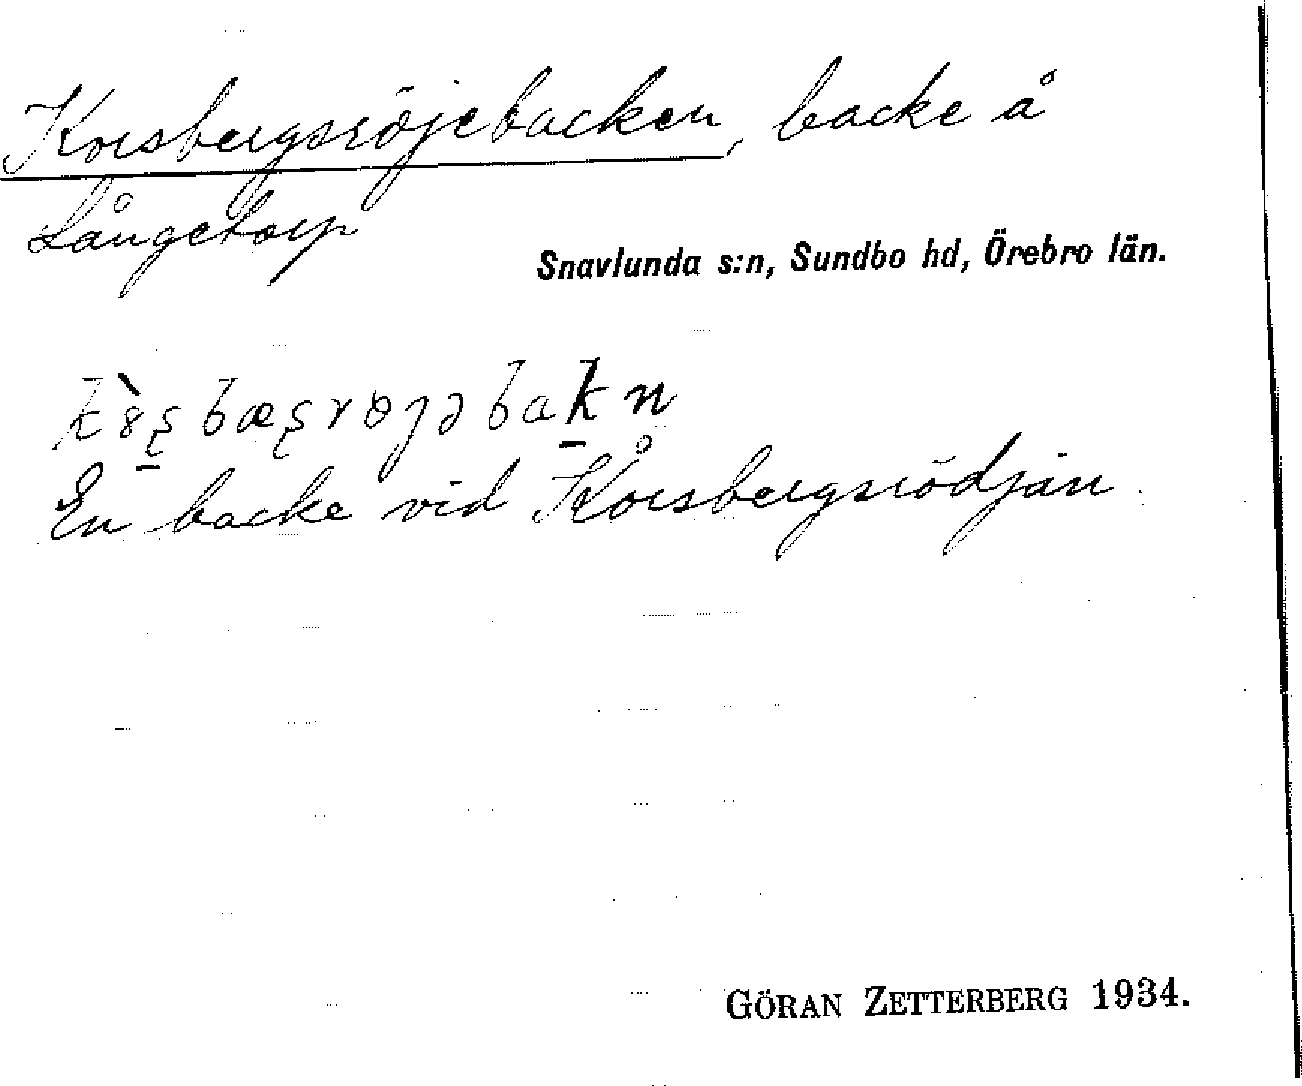 Korsbergsröjebacken, backe å
Långetorp
Snavlunda s:n, Sundbo hd, Örebro län.
En backe vid Kårsbergsrödjan.
GÖRAN ZETTERBERG 1934.